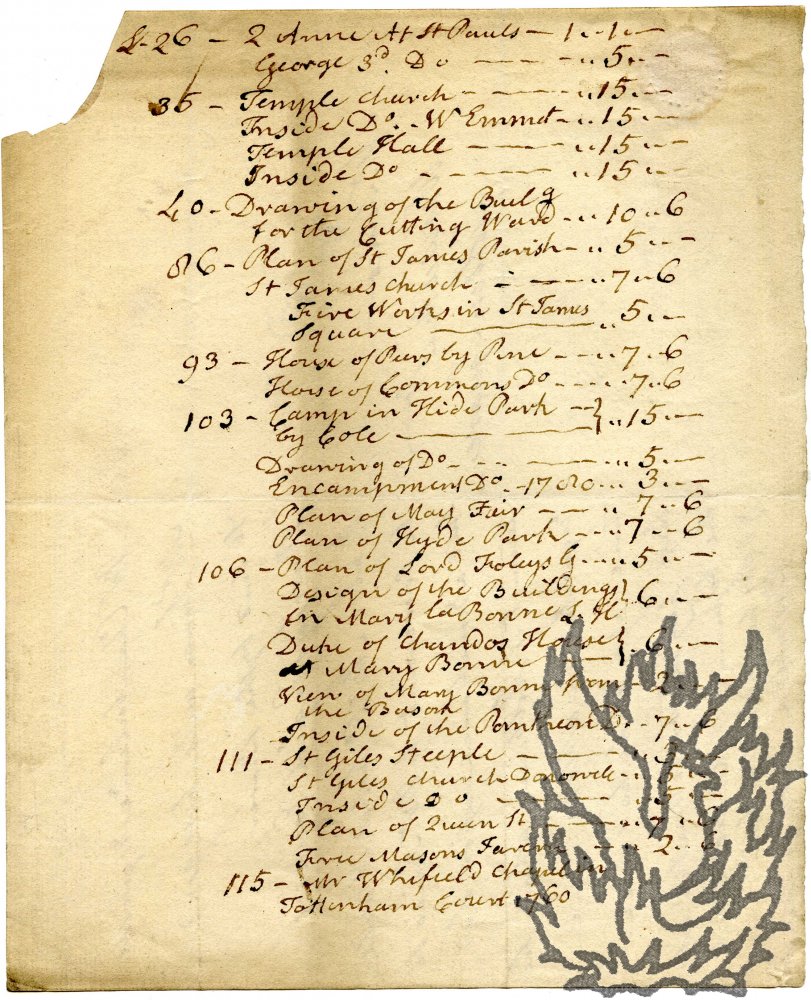 26 - 2 Anne At St Pauls - 1 " 1 " -
George 3d. Do - - - " 5 " -
35 - Temple Church - - - " 15 " -
Inside Do. - W Emmet - " 15 " -
Temple Hall - - - " 15 " -
Inside Do - - - " 15 " -
40 - Drawing of the Buil g
for the Cutting Ward - " 10 " 6
86 - Plan of St James Parish - " 5 " -
St James Church - - " 7 " 6
Fire Works in St James
Square - " 5 " -
93 - House of Peers by Pine - - " 7 " 6
House of Commons Do - - - " 7 " 6
103 - Camp in Hide Park - }
by Cole - } " 15 " -
Drawing of Do - - - - " 5 " -
Encampment Do - 1780 - " 3 " -
Plan of May Fair - - " 7 " 6
Plan of Hyde Park - " 7 " 6
106 - Plan of Lord Foleys - " 5 " -
Design of the Buildings }
in Mary la Bonne } " 6 " -
Duke of Chandos House }
at Mary Bonne - } " 6 " -
View of Mary Bonne from - 2 " -
the Bason
Inside of the Pantheon Do - 7 " 6
111 - St Giles Steeple - - " 3 " -
St Giles Church Donowell - " 5 " -
Inside Do - - " 5 " -
Plan of Queen St - - " 7 " 6
Free Masons Tavern - " 2 " 6
115 - Mr Whifield Chapel in
Tottenham Court 1760